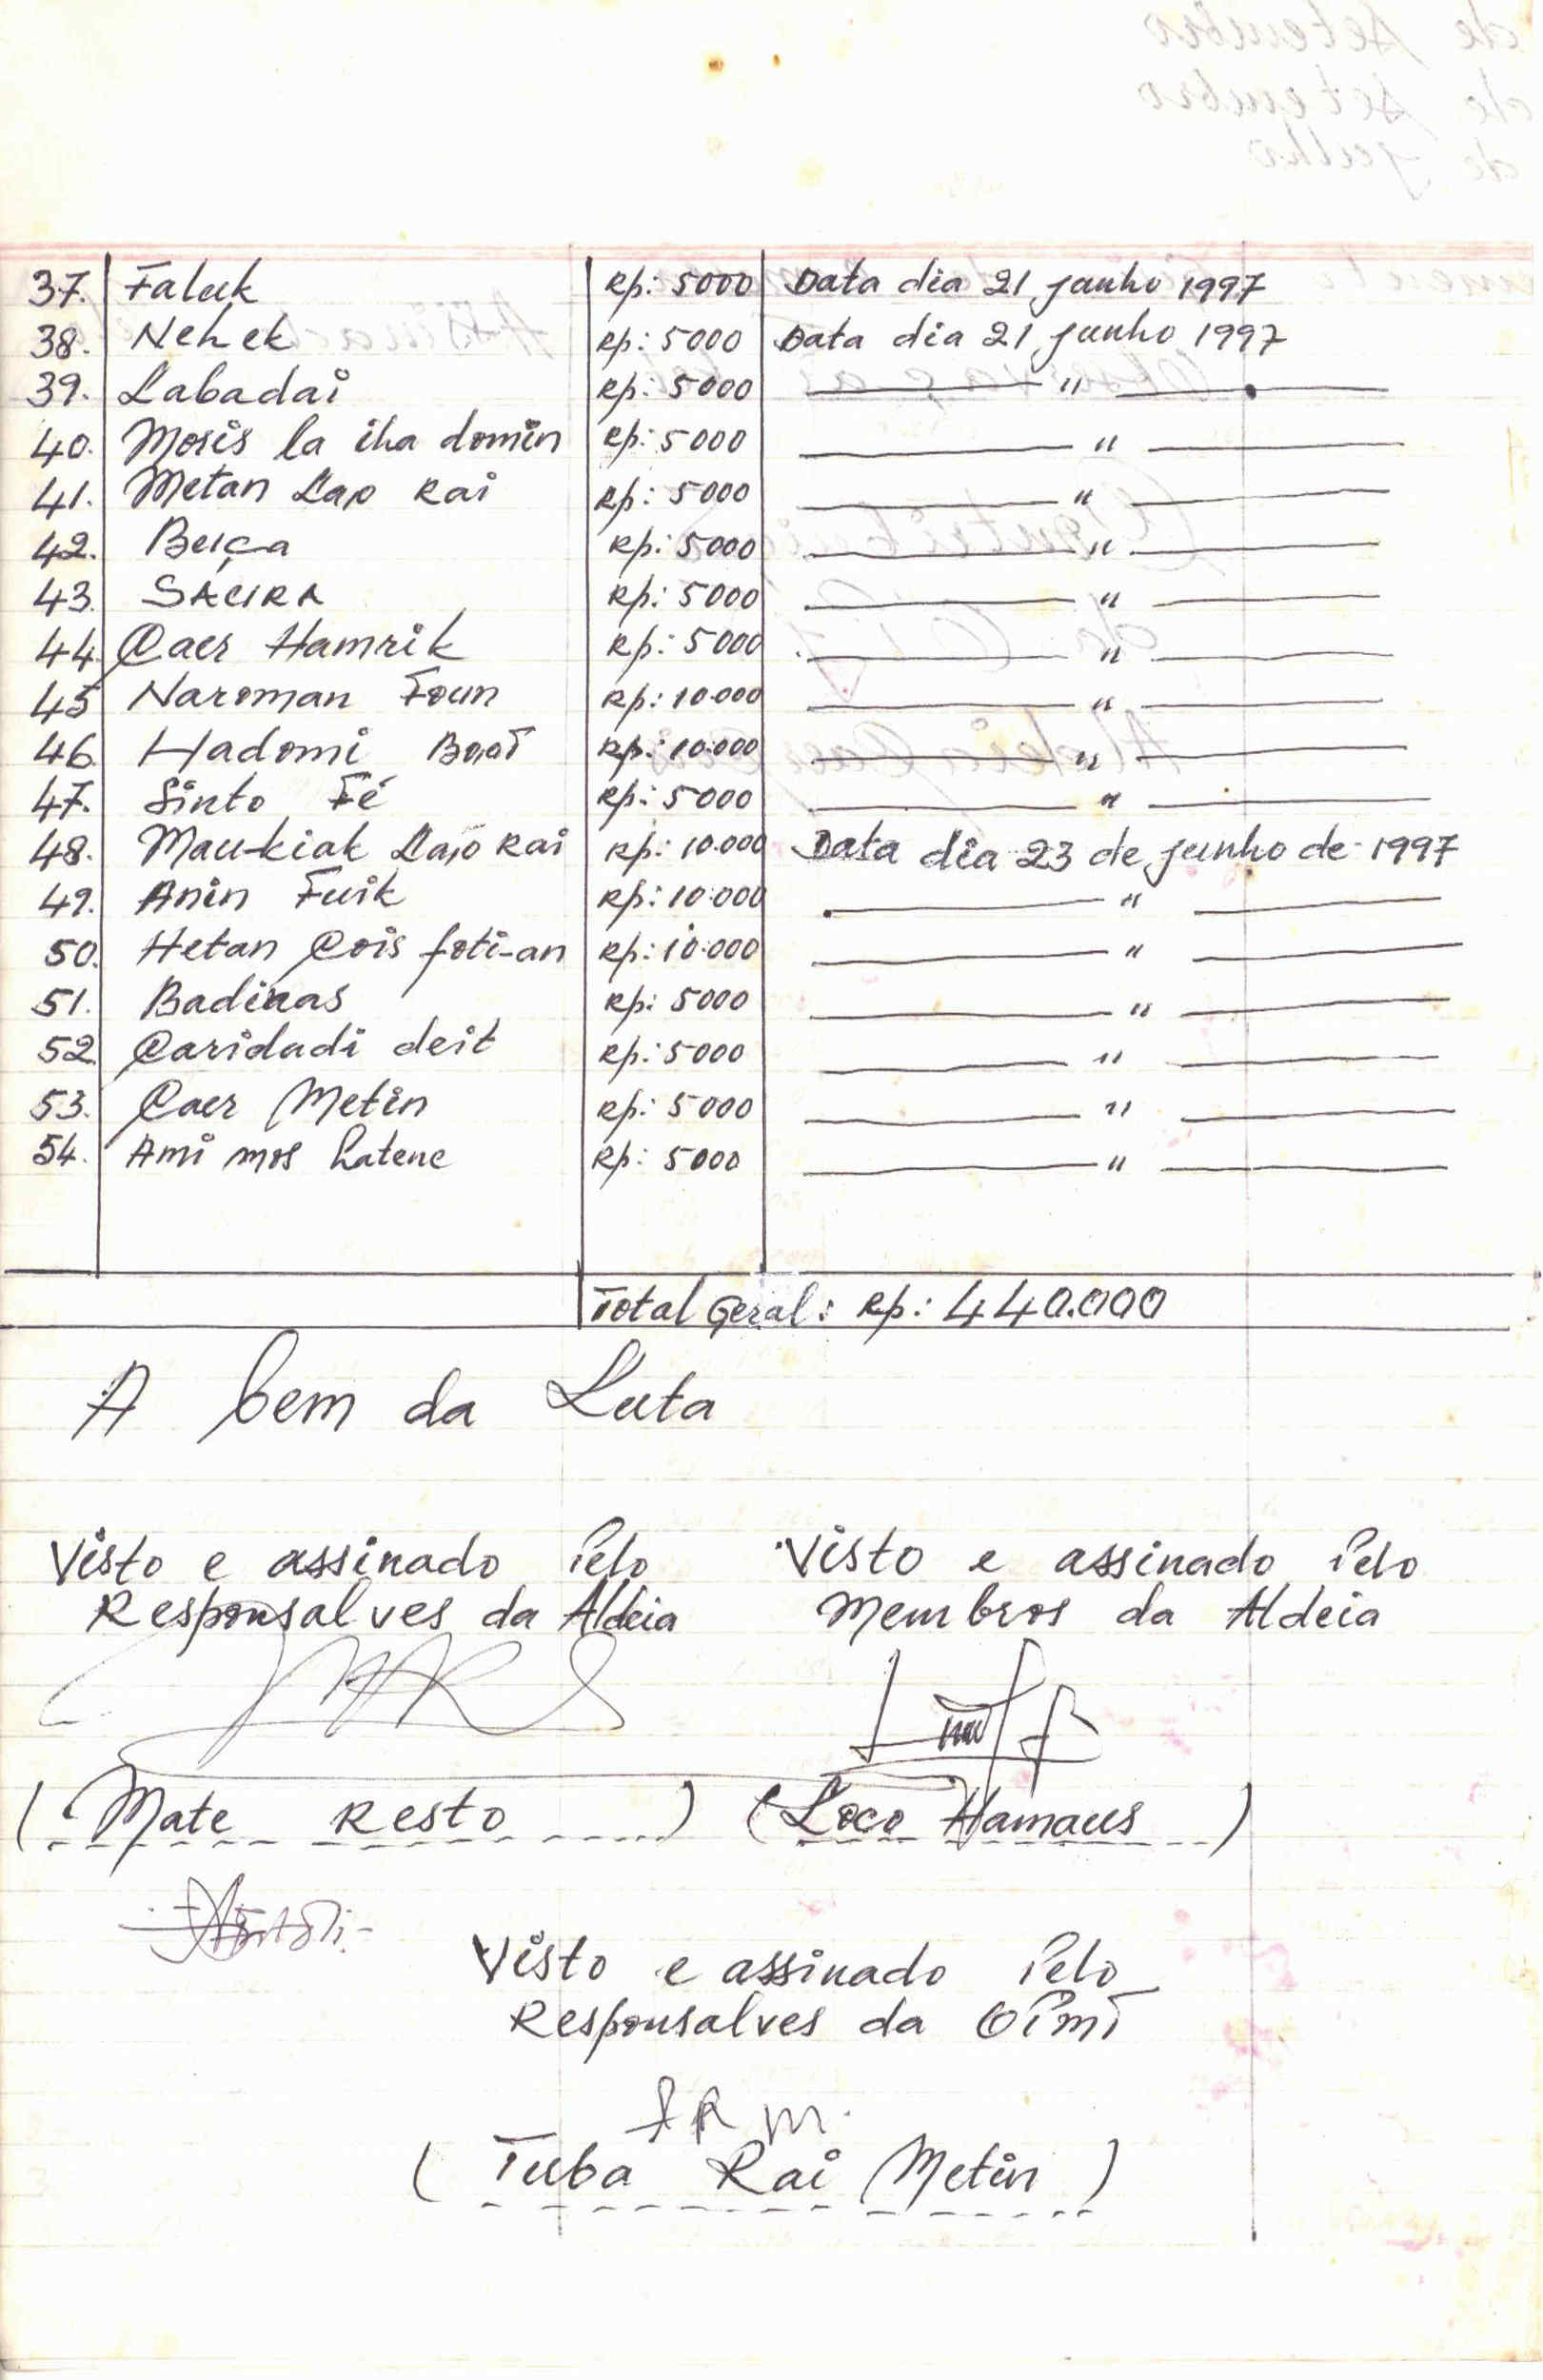 37. Faluk Rp: 5000 Data dia 21 junho 1997
38. Nehek Rp: 5000 Data dia 21 junho 1997
39. Labadai Rp: 5000 "
40. Moris la iha domin Rp: 5000 "
41. Metan Lao Rai Rp: 5000 "
42. Beiça Rp: 5000 "
43. SAURA Rp: 5000 "
44. Caer Hamrik Rp: 5000 "
45 Naroman Foun Rp: 10.000 "
46. Hadomi Boot Rp: 10.000 "
47. Sinto Fé Rp: 5000 "
48. Mau-kiak Lao Rai Rp: 10.000 Data dia 23 de junho de 1997
49. Anin Fuik Rp: 10.000 "
50. Hetan Cois foti-an Rp: 10.000 "
51. Badinas Rp: 5000 "
52. Caridadi deit Rp: 5000 "
53. Caer Metin Rp: 5000 "
54. Ami mos hatene Rp: 5000 "
Total Geral: Rp: 440.000
A bem da Luta
Visto e assinado Pelo
Responsalves da Aldeia
Visto e assinado Pelo
Membros da Aldeia
( Mate Resto ) ( Loco Hamaus )
Visto e assinado Pelo
Responsalves da OPMT
T R M.
( Tuba Rai Metin )